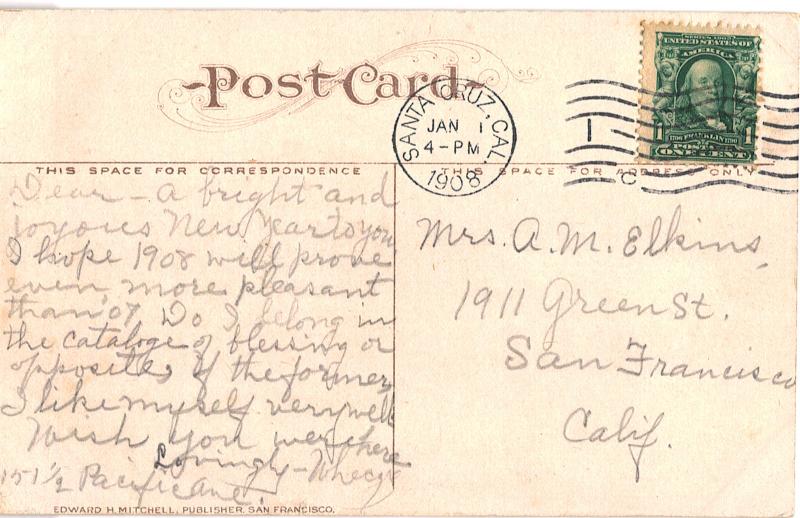 Post Card
SERIES 1902
UNITED STATES OF
AMERICA
1 1706 FRANKLIN 1790 1
POSTAGE
ONE CENT
SANTA CRUZ, CAL.
JAN 1
4-PM
1908
1
C
THIS SPACE FOR CORRESPONDENCE
THIS SPACE FOR ADDRESS ONLY
Dear - a bright and
joyous New Year to you
I hope 1908 will prove
even more pleasant
than '07 Do I belong in
the cataloge of blessing or
opposite, if the former,
I like myself very well
Wish you were here
Lovingly -
151 1/2 Pacific Ave.
Mrs. A. M. Elkins,
1911 Green St.
San Francisco
Calif.
EDWARD H. MITCHELL, PUBLISHER, SAN FRANCISCO.